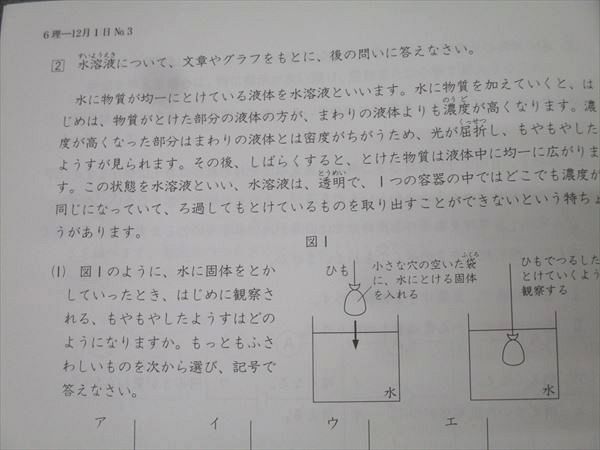 6理―12月1日 No 3
2 水溶液について、文章やグラフをもとに、後の問いに答えなさい。
すいようえき
水に物質が均一にとけている液体を水溶液といいます。水に物質を加えていくと、は
じめは、物質がとけた部分の液体の方が、まわりの液体よりも濃度が高くなります。濃
のうど
度が高くなった部分はまわりの液体とは密度がちがうため、光が屈折し、もやもやした
くっせつ
ようすが見られます。その後、しばらくすると、とけた物質は液体中に均一に広がりま
す。この状態を水溶液といい、水溶液は、透明で、1つの容器の中ではどこでも濃度が
とうめい
同じになっていて、ろ過してもとけているものを取り出すことができないという特ちょ
うがあります。
図1
(1) 図1のように、水に固体をとか
していったとき、はじめに観察さ
れる、もやもやしたようすはどの
ようになりますか。もっともふさ
わしいものを次から選び、記号で
答えなさい。
ひも
小さな穴の空いた袋
ふくろ
に、水にとける固体
を入れる
水
ひもでつるした
とけていくよう
観察する
水
ア イ ウ エ